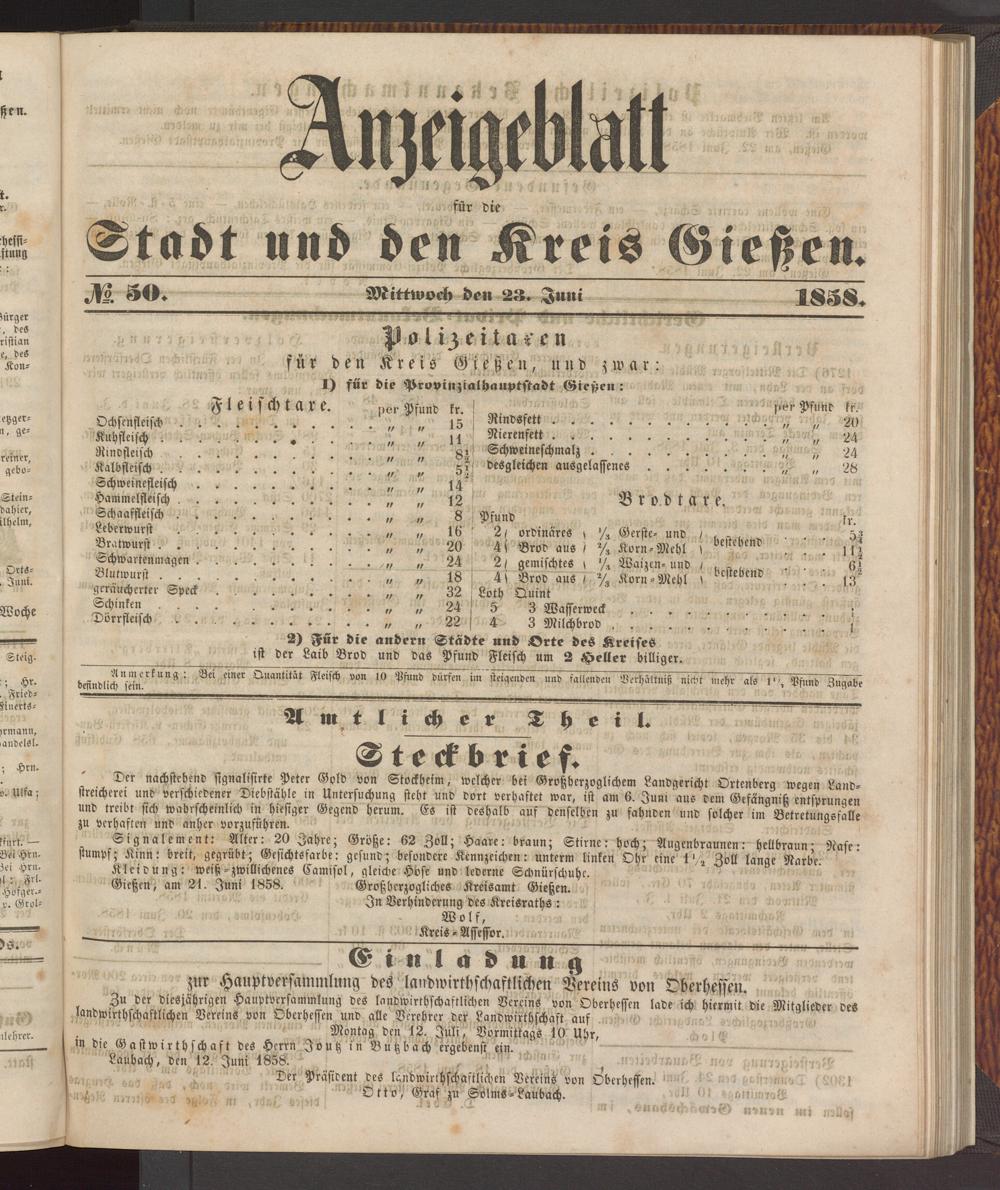 Anzeigeblatt
für die
Stadt und den Kreis Gießen.
№ 50. Mittwoch den 23. Juni 1858.
Polizeitaxen
für den Kreis Gießen, und zwar:
1) für die Provinzialhauptstadt Gießen:
Fleischtaxe. per Pfund kr.
Ochsenfleisch . . . „ „ 15
Kuhfleisch . . . „ „ 11
Rindfleisch . . . „ „ 8½
Kalbfleisch . . . „ „ 5½
Schweinefleisch . . . „ „ 14
Hammelfleisch . . . „ „ 12
Schaaffleisch . . . „ „ 8
Leberwurst . . . „ „ 16
Bratwurst . . . „ „ 20
Schwartenmagen . . . „ „ 24
Blutwurst . . . „ „ 18
geräucherter Speck . . . „ „ 32
Schinken . . . „ „ 24
Dörrfleisch . . . „ „ 22
per Pfund kr.
Rindsfett . . . „ „ 20
Nierenfett . . . „ „ 24
Schweineschmalz . . . „ „ 24
desgleichen ausgelassenes . . . „ „ 28
Brodtaxe.
Pfund kr.
2 ordinäres ⅓ Gerste- und bestehend
4 Brod aus ⅔ Korn-Mehl
2 gemischtes ⅓ Waizen- und bestehend 6½
4 Brod aus ⅔ Korn-Mehl 13
Loth Quint
5 3 Wasserweck . . . 1
4 3 Milchbrod . . . 1
2) Für die andern Städte und Orte des Kreises
ist der Laib Brod und das Pfund Fleisch um 2 Heller billiger.
Anmerkung: Bei einer Quantität Fleisch von 10 Pfund dürfen im steigenden und fallenden Verhältniß nicht mehr als 1½ Pfund Zugabe
befindlich sein.
Amtlicher Theil.
Steckbrief.
Der nachstehend signalisirte Peter Gold von Stockheim, welcher bei Großherzoglichem Landgericht Ortenberg wegen Land-
streicherei und verschiedener Diebstähle in Untersuchung steht und dort verhaftet war, ist am 6. Juni aus dem Gefängniß entsprungen
und treibt sich wahrscheinlich in hiesiger Gegend herum. Es ist deshalb auf denselben zu fahnden und solcher im Betretungsfalle
zu verhaften und anher vorzuführen.
Signalement: Alter: 20 Jahre; Größe: 62 Zoll; Haare: braun; Stirne: hoch; Augenbraunen: hellbraun; Nase:
stumpf; Kinn: breit, gegrübt; Gesichtsfarbe: gesund; besondere Kennzeichen: unterm linken Ohr eine 1½ Zoll lange Narbe.
Kleidung: weiß-zwillichenes Camisol, gleiche Hose und lederne Schnürschuhe.
Gießen, am 21. Juni 1858. Großherzogliches Kreisamt Gießen.
In Verhinderung des Kreisraths:
Wolf,
Kreis-Assessor.
Einladung
zur Hauptversammlung des landwirthschaftlichen Vereins von Oberhessen.
Zu der diesjährigen Hauptversammlung des landwirthschaftlichen Vereins von Oberhessen lade ich hiermit die Mitglieder des
landwirthschaftlichen Vereins von Oberhessen und alle Verehrer der Landwirthschaft auf
Montag den 12. Juli, Vormittags 10 Uhr,
in die Gastwirthschaft des Herrn Joutz in Butzbach ergebenst ein.
Laubach, den 12. Juni 1858.
Der Präsident des landwirthschaftlichen Vereins von Oberhessen.
Otto, Graf zu Solms-Laubach.